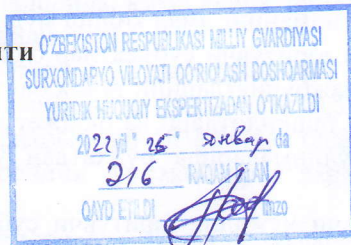 ити
O'ZBEKISTON RESPUBLIKASI MILLIY GVARDIYASI
SURXONDARYO VILOYATI QO'RIQLASH BOSHQARMASI
YURIDIK HUQUQIY EKSPERTIZADAN O'TKAZILDI
2022 yil "26" Январ da
216 RAQAM BILAN
QAYD ETILDI imzo